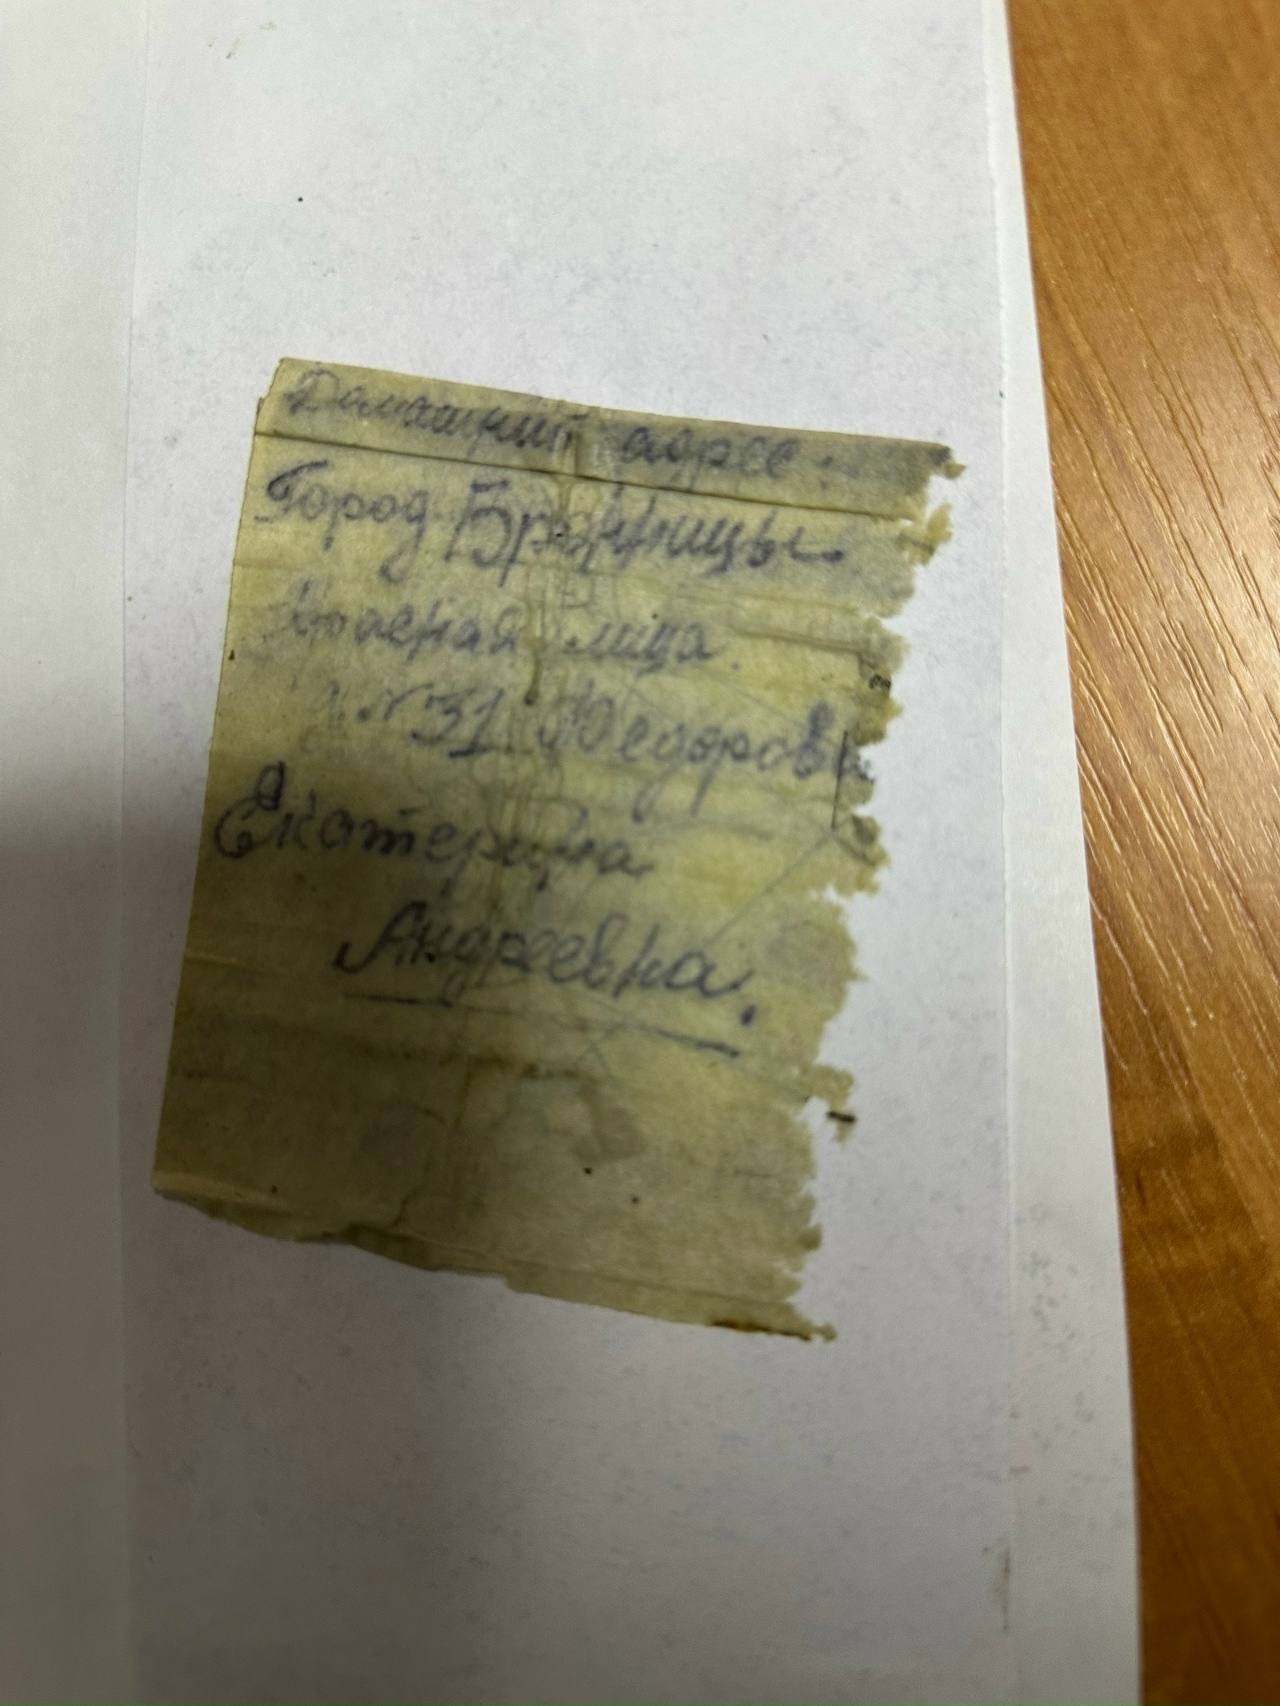 Домашний адрес:
Город Бронницы
лица
31 Федоров
Екатерина
Андреевна.